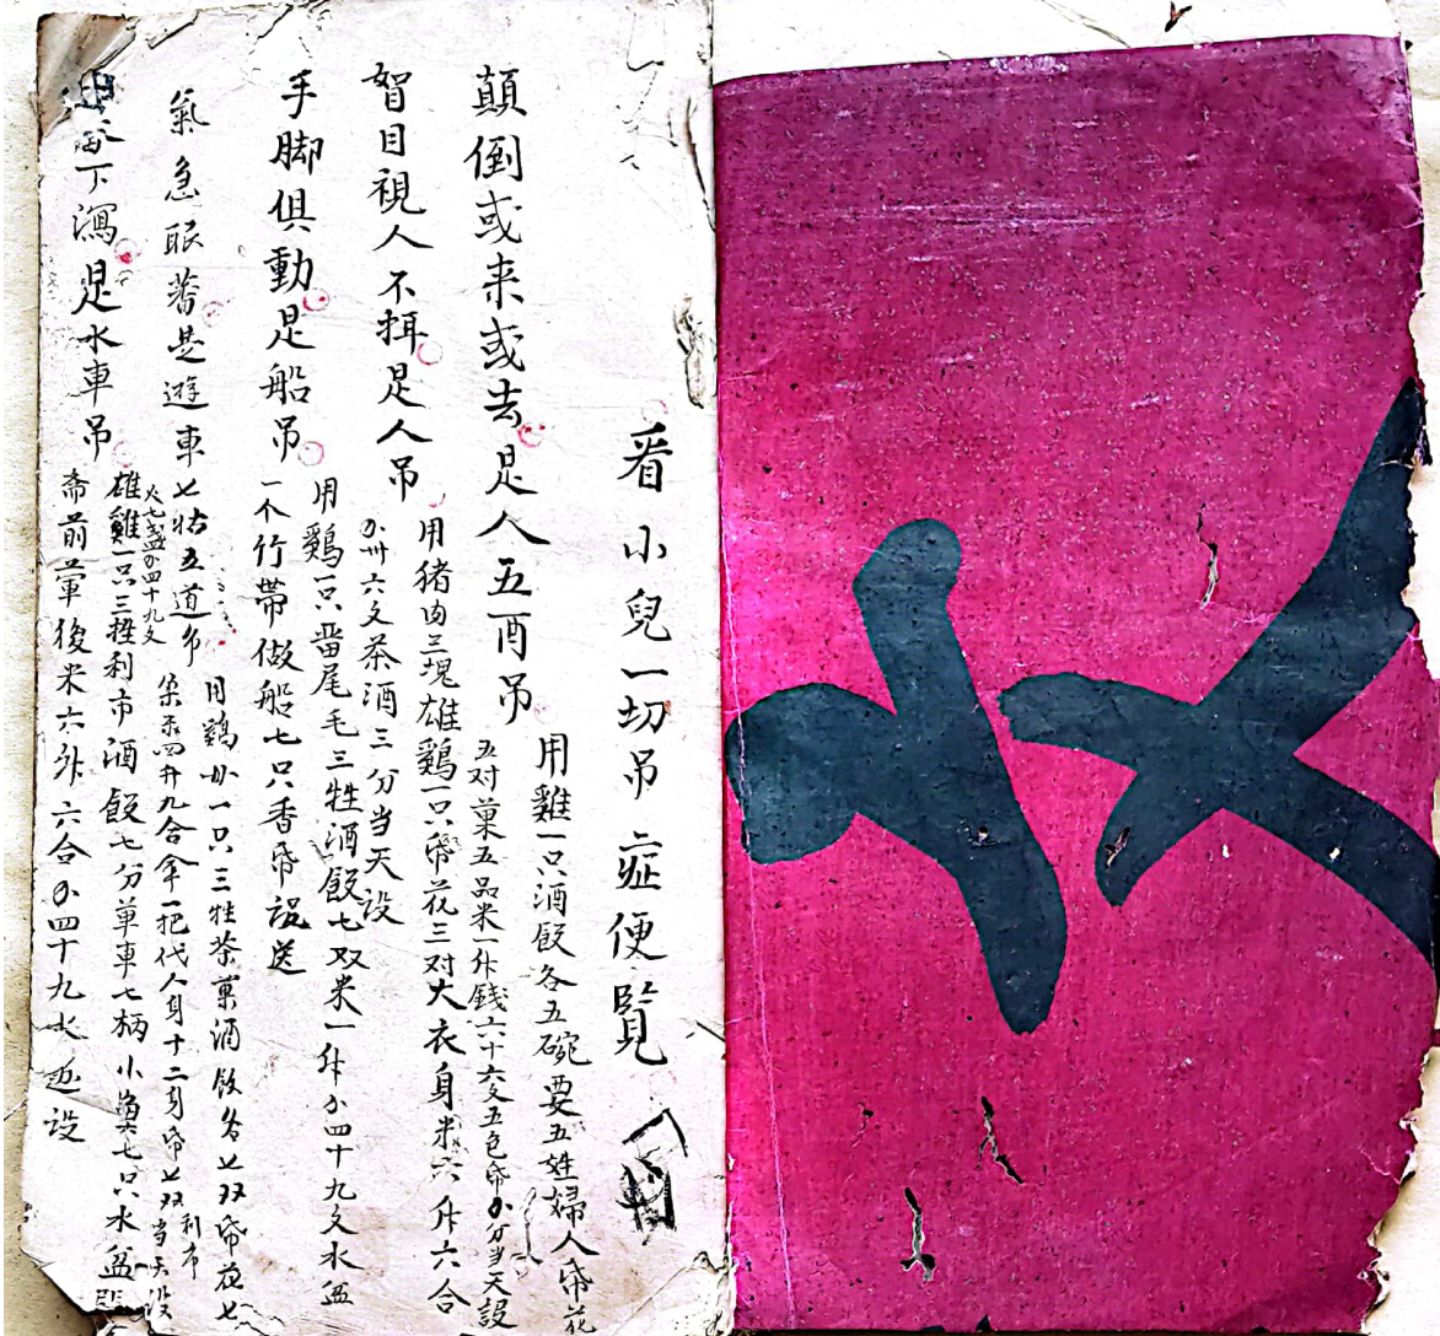 看小兒一切吊症便覧
顛倒或来或去是人五酉吊
用雞一只酒飯各五碗要五姓婦人帋花
五对菓五品米一升錢六十六文五色帋分当天設
目視人不揖是人吊
用猪肉三塊雄鷄一只帋花三对大衣身米六升六合
卅六文茶酒三分当天设
手脚俱動是船吊
用鷄一只畨尾毛三牲酒飯七双米一升四十九文水盆
一个竹帶做船七只香帋設送
氣急眼蕃是遊車七姑五道
用鷄一只三牲茶菓酒飯各七双帋花七
四升九合傘一把代人身十二身帋七双利市当天设
下瀉是水車吊
火七盞四十九文
雄雞一只三牲利市酒飯七分草車七柄小魚七只水盆
斎前葷後米六升六合四十九火边设